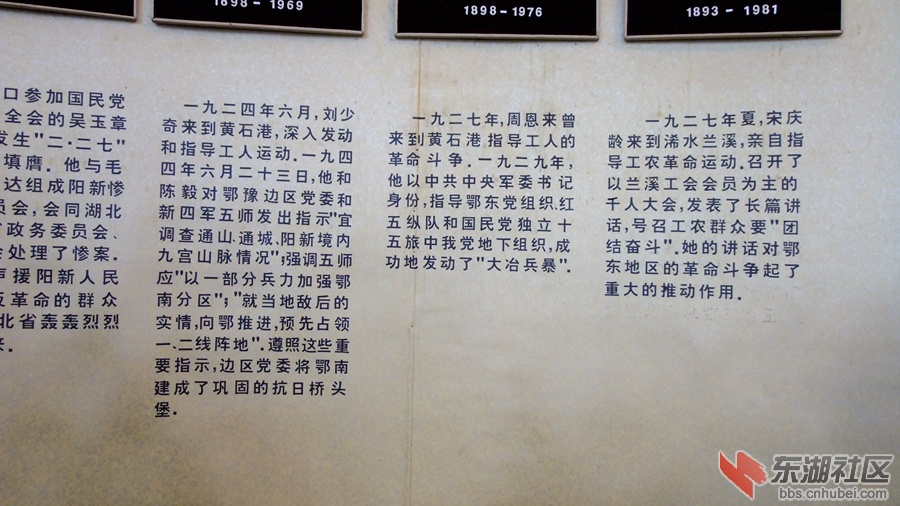 1898-1969
1898-1976
1893-1981
口参加国民党
全会的吴玉章
发生"二·二七"
填膺. 他与毛
达组成阳新惨
员会, 会同湖北
省政务委员会、
处理了惨案.
声援阳新人民
反革命的群众
北省轰轰烈烈
来.
一九二四年六月, 刘少
奇来到黄石港, 深入发动
和指导工人运动. 一九四
四年六月二十三日, 他和
陈毅对鄂豫边区党委和
新四军五师发出指示"宜
调查通山、通城、阳新境内
九宫山脉情况"; 强调五师
应"以一部分兵力加强鄂
南分区"; "就当地敌后的
实情, 向鄂推进, 预先占领
一、二线阵地". 遵照这些重
要指示, 边区党委将鄂南
建成了巩固的抗日桥头
堡.
一九二七年, 周恩来曾
来到黄石港指导工人的
革命斗争. 一九二九年,
他以中共中央军委书记
身份, 指导鄂东党组织、红
五纵队和国民党独立十
五旅中我党地下组织, 成
功地发动了"大冶兵暴".
一九二七年夏, 宋庆
龄来到浠水兰溪, 亲自指
导工农革命运动. 召开了
以兰溪工会会员为主的
千人大会, 发表了长篇讲
话, 号召工农群众要"团
结奋斗". 她的讲话对鄂
东地区的革命斗争起了
重大的推动作用.
东湖社区
bbs.cnhubei.com